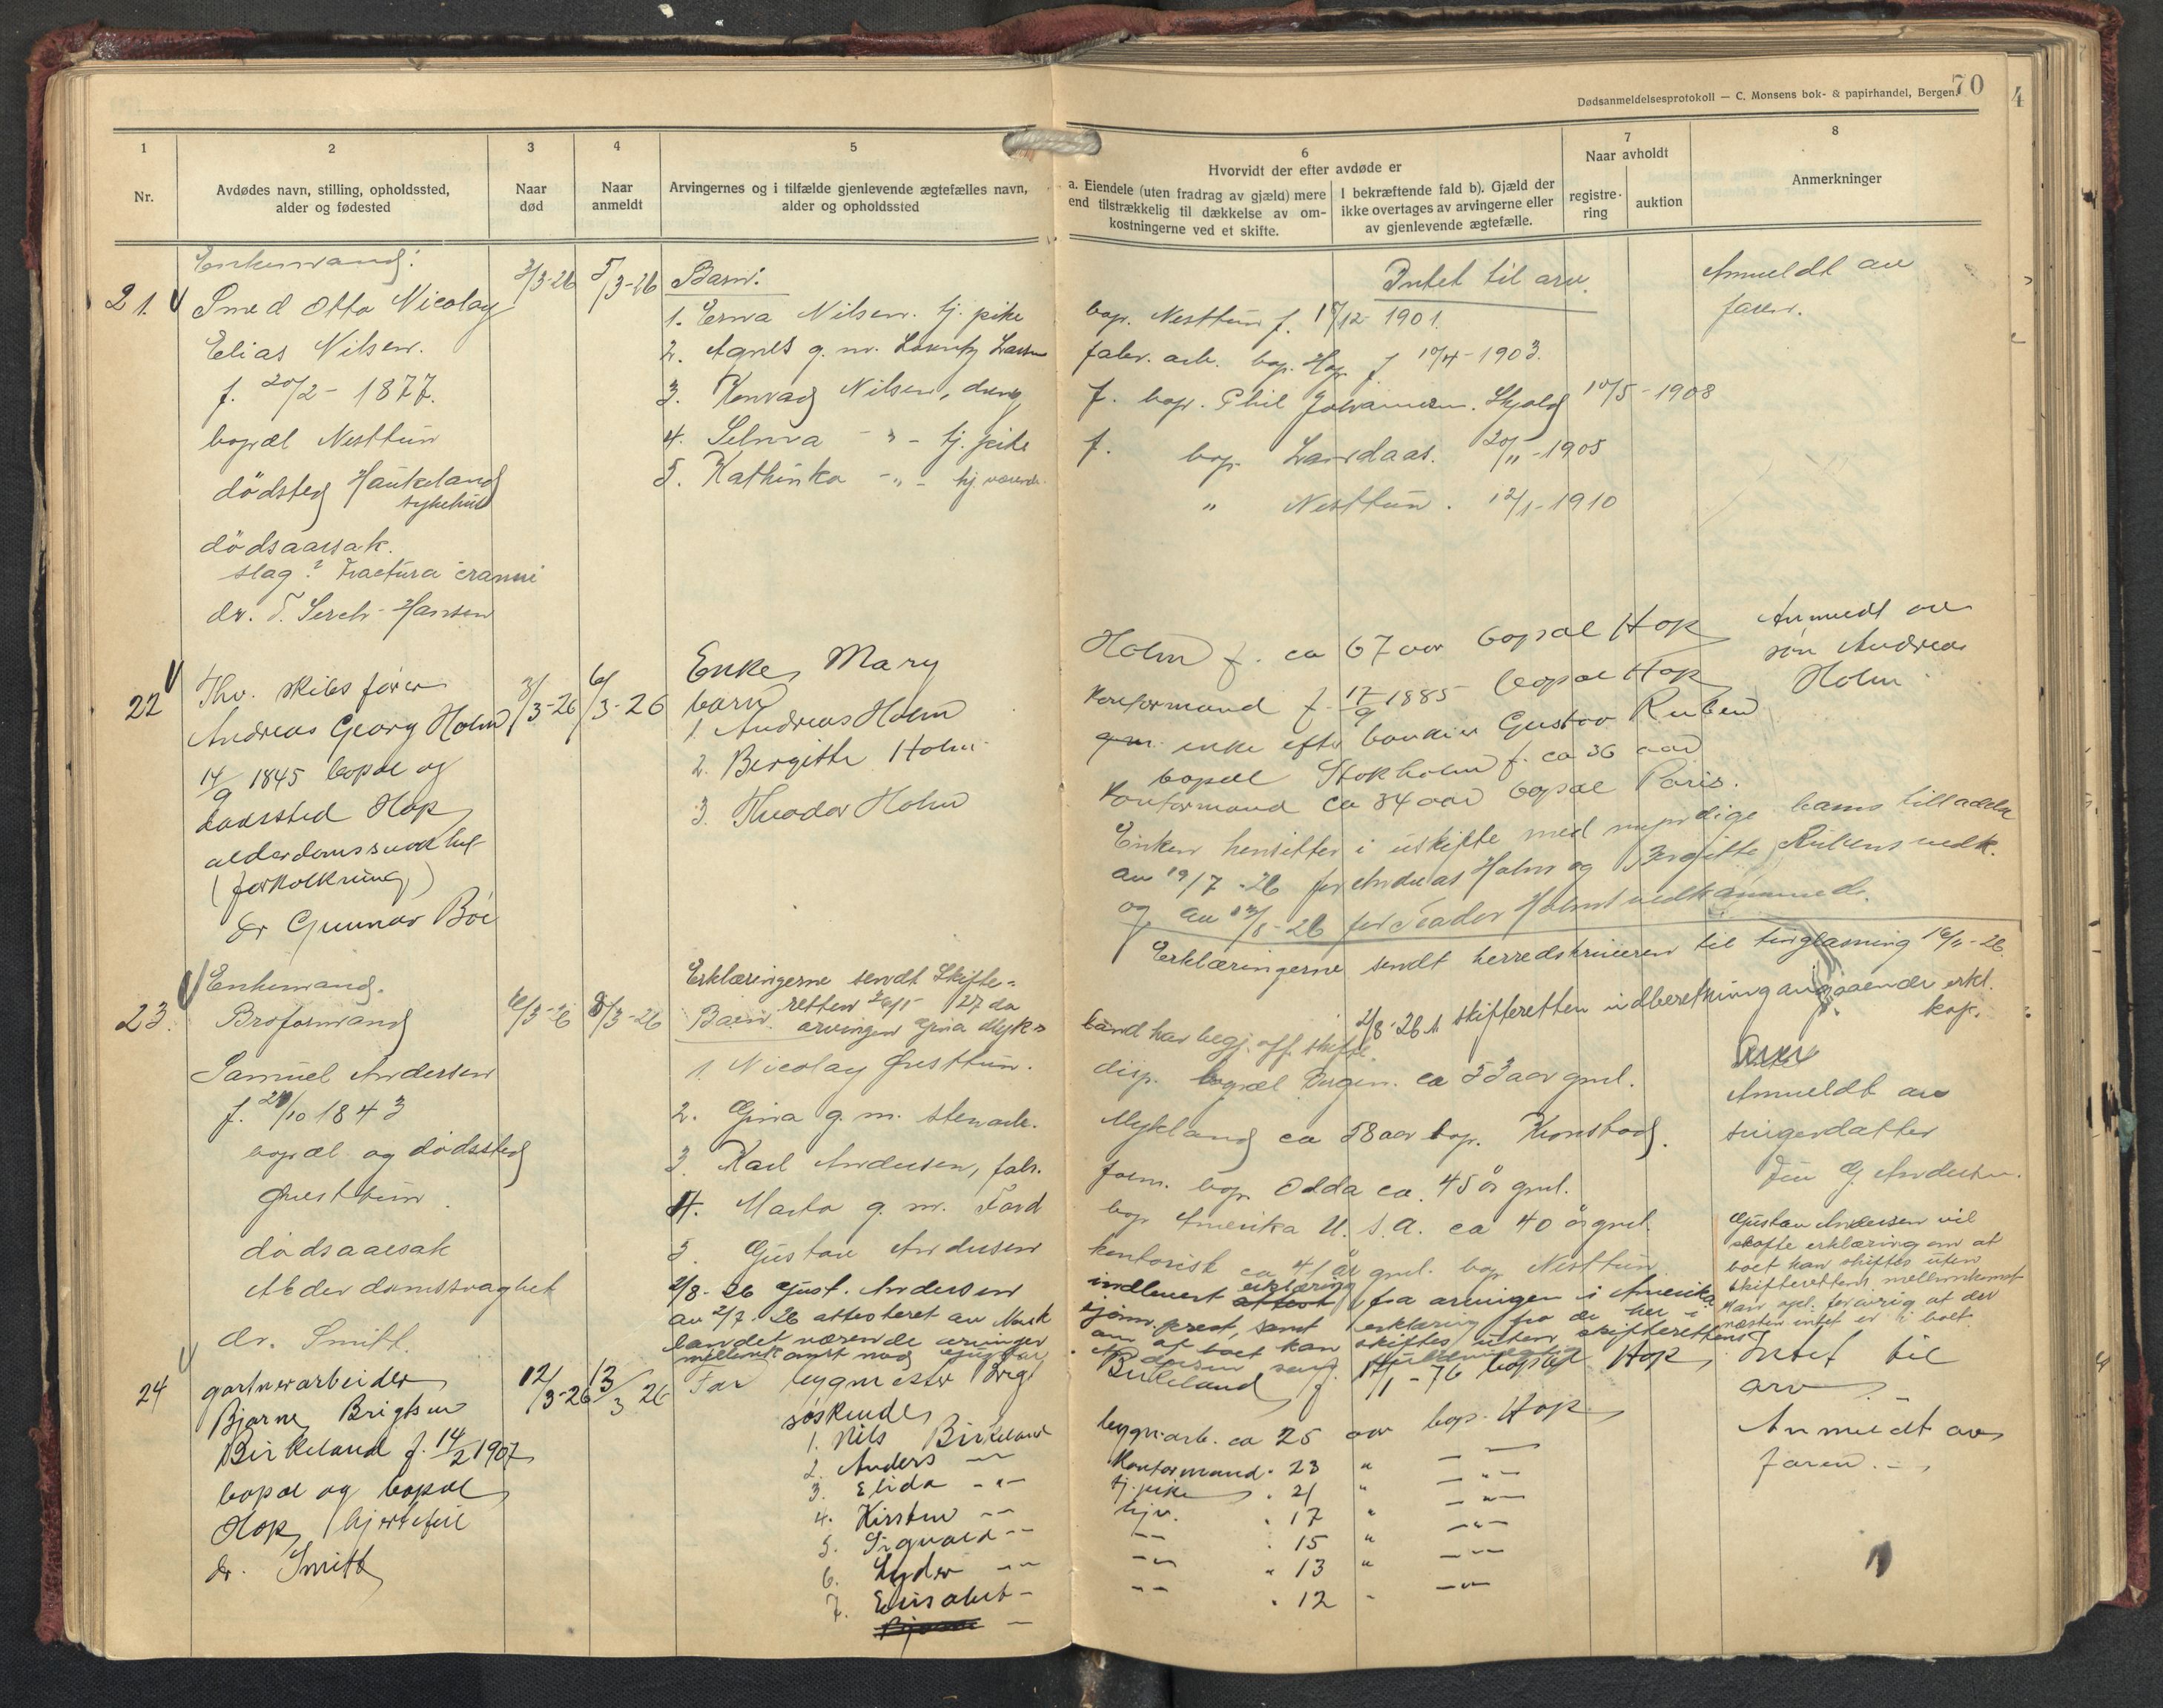 70
4
Dødsanmeldelsesprotokoll — C. Monsens bok- & papirhandel, Bergen.
1
Nr.
2
Avdødes navn, stilling, opholdssted,
alder og fødested
3
Naar
død
4
Naar
anmeldt
5
Arvingernes og i tilfælde gjenlevende ægtefælles navn,
alder og opholdssted
6
Hvorvidt der efter avdøde er
a. Eiendele (uten fradrag av gjæld) mere
end tilstrækkelig til dækkelse av om-
kostningerne ved et skifte.
I bekræftende fald b). Gjæld der
ikke overtages av arvingerne eller
av gjenlevende ægtefælle.
7
Naar avholdt
registre-
ring
auktion
8
Anmerkninger
21.
Enkemand:
Smed Otto Nicolay
Elias Nilsen.
f. 20/2 - 1877.
bopæl Nesttun
dödsted Haukeland
sykehus
dödsaarsak.
slag? Fractura cranni
dr. Hansen
3/3-26
5/3-26
Barn:
1. Erna Nilsen. tj. pike
2. Agnes g. m. Lauritz
3. Konrad Nilsen, dreng
4. Selma - " - tj. pike
5. Kathinka - " - hj. værende
Intet til arv.
bop. Nesttun f. 17/12 1901.
fabr. arb. bop. Hop f 10/4 - 1903.
f. bop. Phil Johannesen. Skjold 10/5 - 1908
f. bop. Landaas. 20/11 - 1905
" Nesttun. 12/1 - 1910
Anmeldt av
faren.
22
Thv. skibsfører
Andreas Georg Holm
14/9 1845 bopæl og
dødssted Hop
alderdomssvakhet
(forkolkning)
dr Gunnar Böe
3/3-26
6/3-26
Enke, Mary
barn
1. Andreas Holm
2. Bergitte Holm
3. Theodor Holm
Holm f. ca 67 aar bopæl Hop
Kontormand f. 17/9 1885 bopæl Hop
g.m. enke efter bankier Gustav Ruben
bopæl Stokholm f. ca 36 aar
Kontormand ca 34 aar bopæl Paris.
Enken hensitter i uskifte med myndige barns tilladelse
av 19/7-26 for Andreas Holm og Bergitte Rubens vedk.
og av for Teodor Holms vedkommende.
Erklæringerne sendt herredskriveren til tinglæsning 16/11-26.
Anmeldt av
søn Andreas
Holm
23.
Enkemand.
Broformand
Samuel Andersen
f. 20/10 1843
bopæl og dödssted
Øvsttun.
dödsaarsak
Alderdomssvaghet
dr. Smitt.
6/3-26
8/3-26
Erklæringerne sendt Skifte-
retten 26/1 - 27 da
Barn. arvingen Gina Myk-
1. Nicolay Øvsttun.
2. Gina g. m. stenarb.
3. Karl Andersen, fabr.
4. Marta g. m. Ford
5. Gustav Andersen
2/8-26 Gust. Andersen
av 2/7-26 attesteret av Norsk
landet nærende arvinger
mellemkomst med Gustav
2/8-26 t. skifteretten indberetning angaaende erkl.
kop.
land har begj. off. skifte.
disp. bopæl Bergen. ca 53 aar gml.
Mykland ca 58 aar bop. Kronstad.
form. bop. Odda ca. 45 år gml.
bop Amerika U. S. A. ca 40 år gml.
kontorist ca 41 år gml. bop Nesttun
indlevert attest erklæring fra arvingen i Amerika
sjöm. prest, samt erklæring fra de her i
om at boet kan skiftes uten skifterettens
Andersen som fuldmægtig
Anmeldt av
svigerdatter
Fru G Andersen.
Gustav Andersen vil
skaffe erklæring om at
boet kan skiftes uten
skifterettens mellemkomst
Han opl. forøvrig at der
næsten intet er i boet.
24
gartnerarbeider
Bjarne Brigtsen
Birkeland f. 14/2 1907
bopæl og bopæl
Hop, hjertefeil
dr. Smith
12/3-26
13/3 26
Far bygmester Brigt
søskende
1. Nils Birkeland
2. Anders - " -
3. Elida - " -
4. Kirsten - " -
5. Sigvald - " -
6. Lyder - " -
7. Elisabet -
Bjarne -
Birkeland f 17/1 - 76 bopæl Hop
bygn.arb. ca 25 aar bop. Hop
Kontormand " 23 " - " -
tj. pike " 21 " - " -
hjv. " 17 " - " -
- " - " 15 " - " -
- " - " 13 " - " -
- " - " 12 - - " -
Intet til
arv.
Anmeldt av
faren.